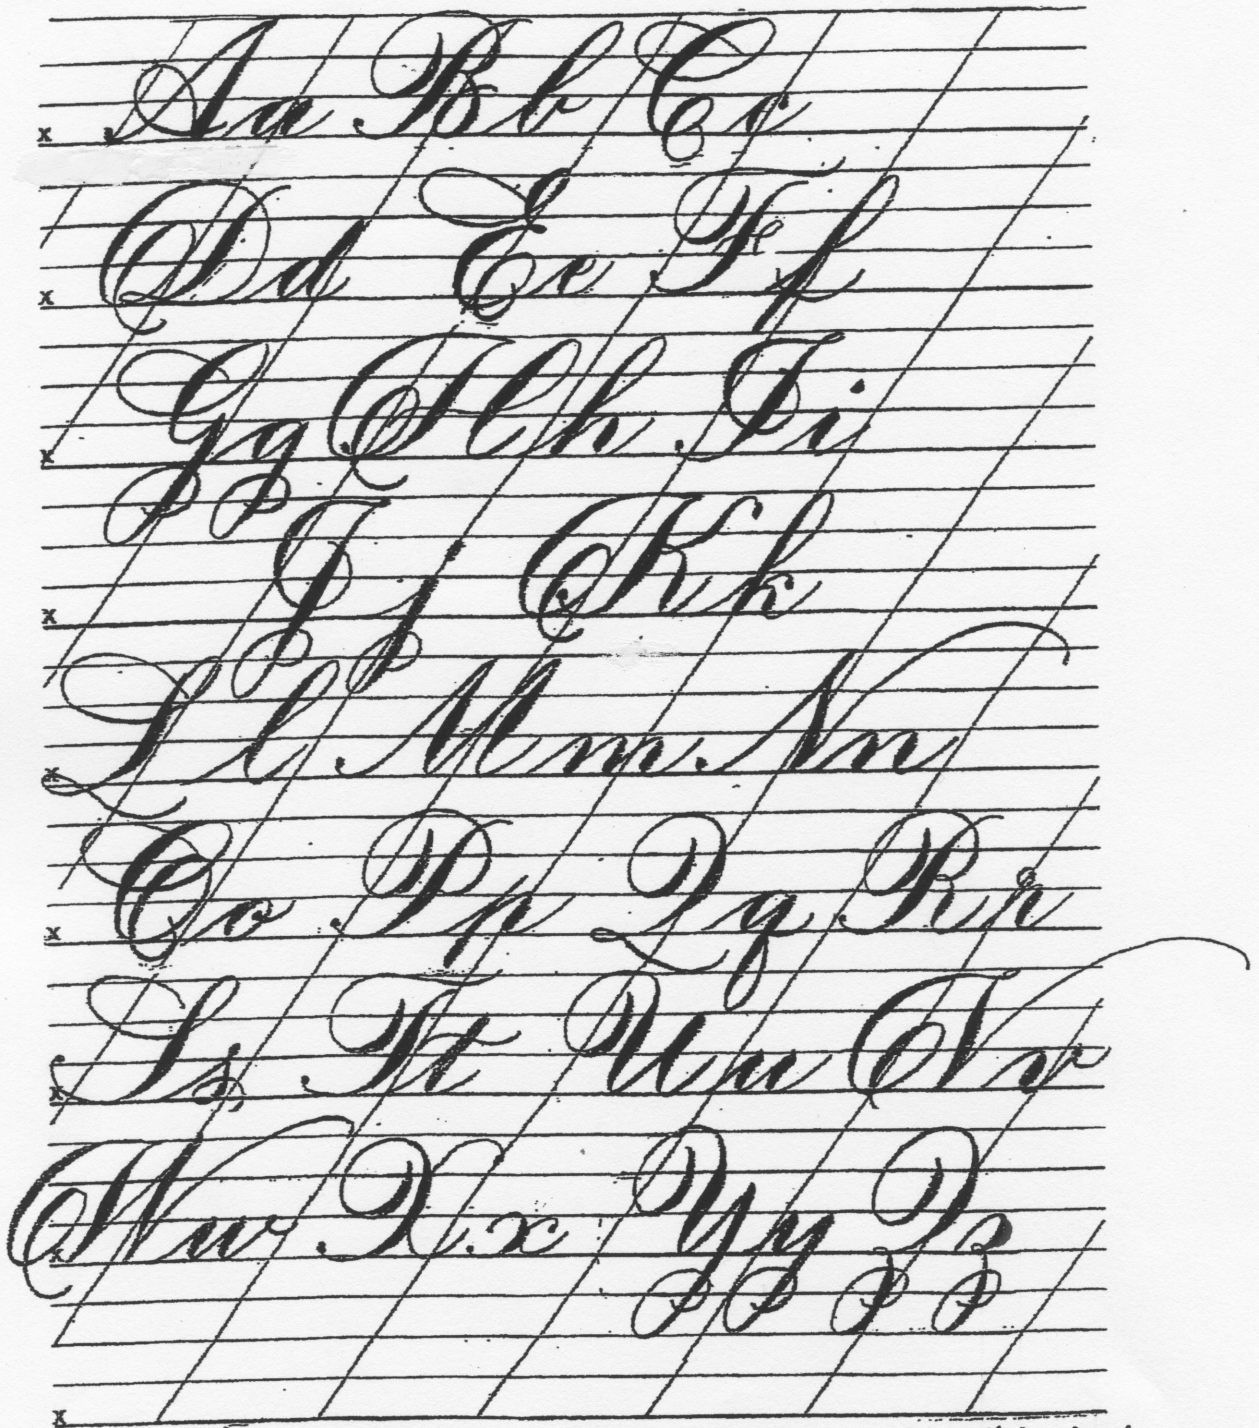 Aa Bb Cc
x
Dd Ee Ff
x
Gg Hh Ii
x
Jj Kk
x
Ll Mm Nn
x
Oo Pp Qq Rr
x
Ss Tt Uu Vv
x
Ww Xx Yy Zz
x